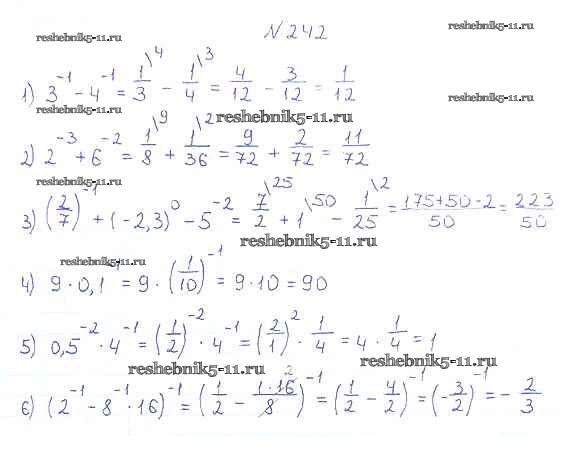 N 242
reshebnik5-11.ru
reshebnik5-11.ru
1) 3⁻¹ - 4⁻¹ = 1/3 \4 - 1/4 \3 = 4/12 - 3/12 = 1/12
reshebnik5-11.ru
reshebnik5-11.ru
reshebnik5-11.ru
2) 2⁻³ + 6⁻² = 1/8 \9 + 1/36 \2 = 9/72 + 2/72 = 11/72
reshebnik5-11.ru
reshebnik5-11.ru
3) (2/7)⁻¹ + (-2,3)⁰ - 5⁻² = 7/2 \25 + 1 \50 - 1/25 \2 = 175+50-2/50 = 223/50
reshebnik5-11.ru
4) 9 · 0,1⁻¹ = 9 · (1/10)⁻¹ = 9 · 10 = 90
5) 0,5⁻² · 4⁻¹ = (1/2)⁻² · 4⁻¹ = (2/1)² · 1/4 = 4 · 1/4 = 1
reshebnik5-11.ru
reshebnik5-11.ru
6) (2⁻¹ - 8⁻¹ · 16)⁻¹ = (1/2 - 1·16 2/8)⁻¹ = (1/2 - 4/2)⁻¹ = (-3/2)⁻¹ = - 2/3